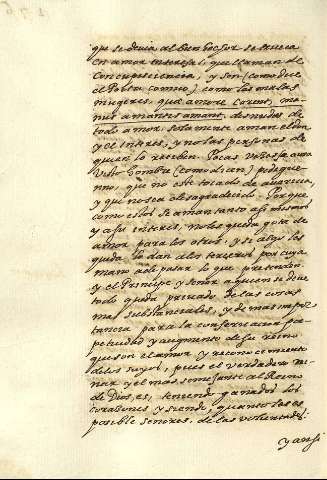 que se devia al bien hechor se trueca
en amor interesal, que llaman de
Concupiscencia, y son (como dice
el Poeta comico) como las malas
mugeres, quæ amore carent, mu-
nus amantes amant, desnudas de
todo amor, solamente aman el don
y el interes, y no las personas de
quien lo reciben. Pocas vezes he
visto hombre (como dicen) pedigue-
nno, que no esté tocado de avaricia,
y que no sea desagradecido. Porque
como estos se aman tanto a si mismos
y a su interes, no les queda gota de
amor para los otros; y si algo les
queda lo dan al tercero por cuya
mano ade pasar lo que pretenden
y el Principe y señor a quien se deve
todo queda privado de las cosas
mas substanciales, y de mas impor-
tancia para la conservacion per-
petuidad y augmento de su reino
que son el amor y reconocimiento
de los suyos, pues el verdadero rei-
nar y el mas semejante al Reino
de Dios, es, teniendo ganados los
corazones y siendo, quanto les es
posible señores, de las voluntades.
y ansi